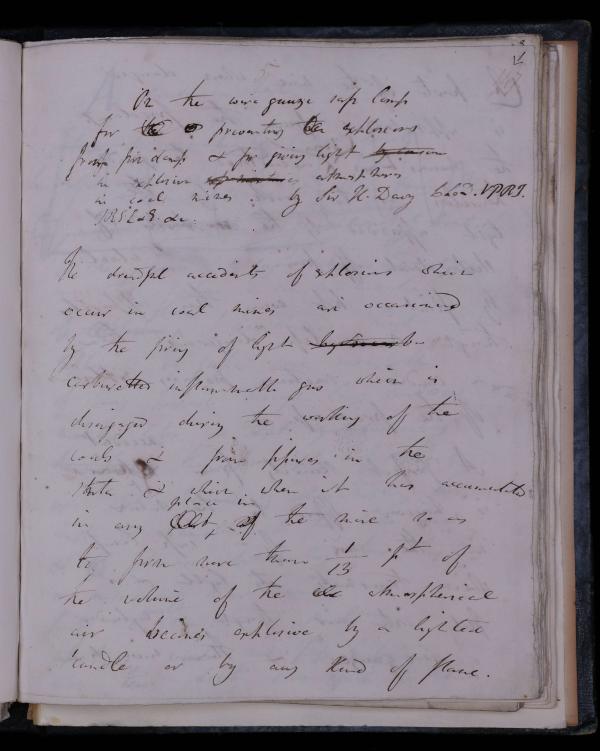 On the wire gauze safe lamp
for preventing explosions
from fire damp & for giving light
in explosive atmospheres
in coal mines. by Sir H. Davy L.L.D. V.P.R.I.
F.R.S.L & E. &c.
The dreadful accidents of explosions which
occur in coal mines are occasioned
by the firing of light
carburetted inflammable gas which is
disengaged during the working of the
coals & from fissures in the
strata & which when it has accumulated
place in
in any of the mine so as
to form more than 1/13 pt of
the volume of the atmospherical
air becomes explosive by a lighted
candle or by any kind of flame.